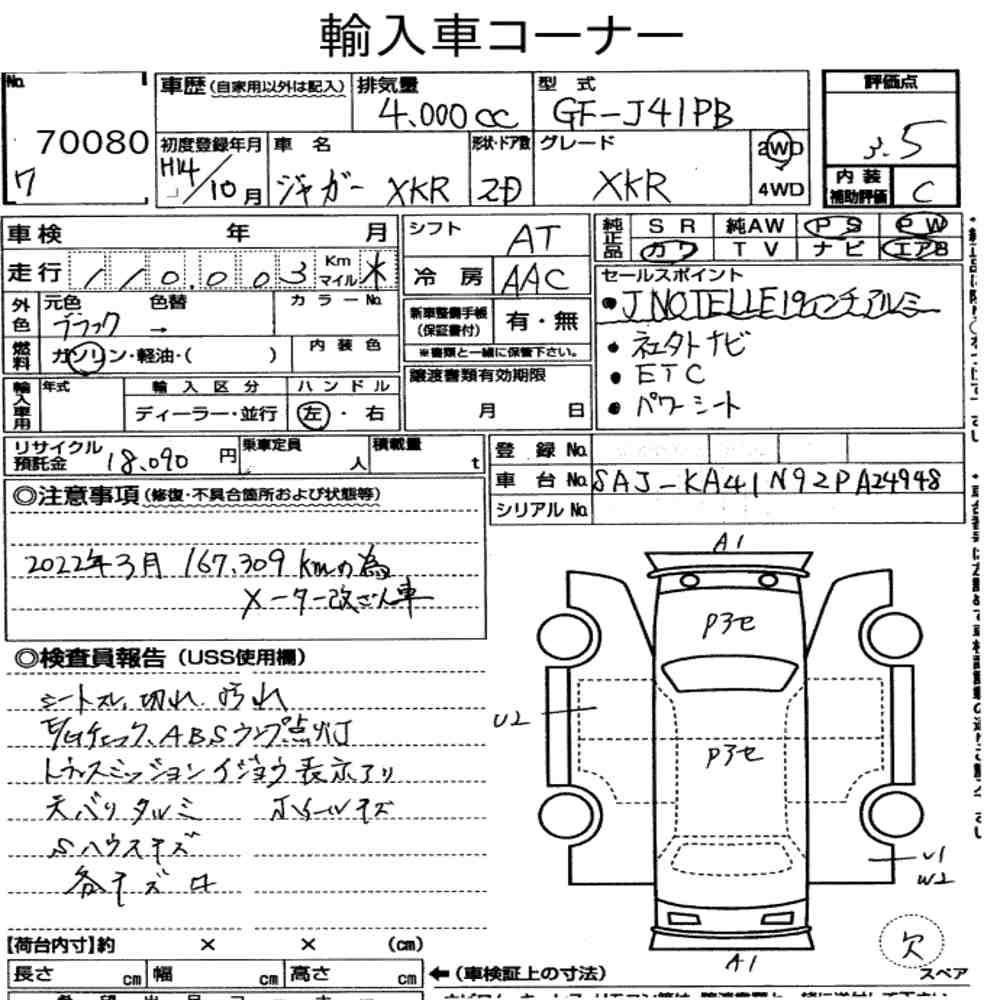 輸入車コーナー
No.
70080
7
車歴 (自家用以外は記入)
排気量
4.000cc
型式
GF-J41PB
評価点
3.5
初度登録年月
H14/10月
車名
ジャガー XKR
形状・ドア数
2D
グレード
XKR
2WD
4WD
内装
補助評価
C
車検 年 月
シフト
AT
純正品
SR 純AW PS PW
カワ TV ナビ エアB
走行 110.003 Km マイル *
冷房
AAC
セールスポイント
• J NOTELLE 19インチアルミ
• 社外ナビ
• ETC
• パワーシート
外色
元色 色替
ブラック →
カラーNo.
新車整備手帳
(保証書付)
有・無
※書類と一緒に保管下さい。
燃料
ガソリン・軽油・( )
内装色
譲渡書類有効期限
月 日
輸入車用
年式
輸入区分
ディーラー・並行
ハンドル
左・右
リサイクル
預託金
18.090円
乗車定員
人
積載量
t
登録No.
車台No.
SAJ-KA41N92PA24948
シリアルNo.
◎注意事項 (修復・不具合箇所および状態等)
2022年3月 167.309kmの為
メーター改ざん車
◎検査員報告 (USS使用欄)
シートスレ、切れ、汚れ
E/Gチェック、ABSランプ点灯
トランスミッションイジョウ表示アリ
天バリタルミ ホイールキズ
Sハウスキズ
各キズ凹
A1
Pヨセ
U2
Pヨセ
U1
W2
A1
欠
スペア
【荷台内寸】約 × × (cm)
長さ cm 幅 cm 高さ cm
← (車検証上の寸法)